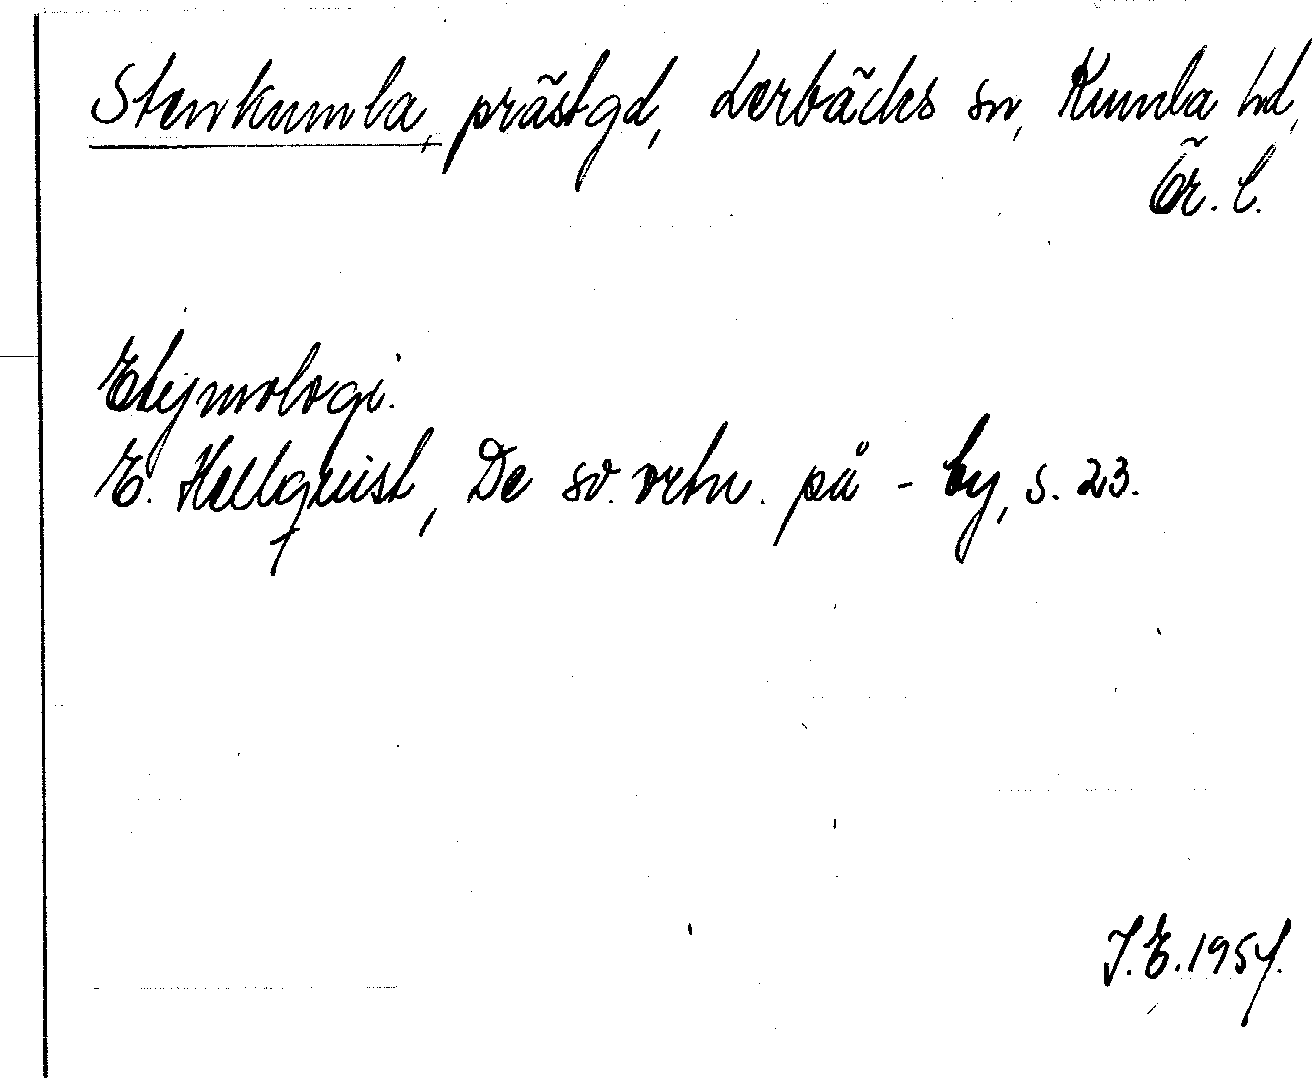 Stenkumla, prästgd, Lerbäcks sn, Kumla hd,
Ör. l.
Etymologi.
E. Hellquist, De sv. ortn. på - by, s. 23.
J. E. 1954.